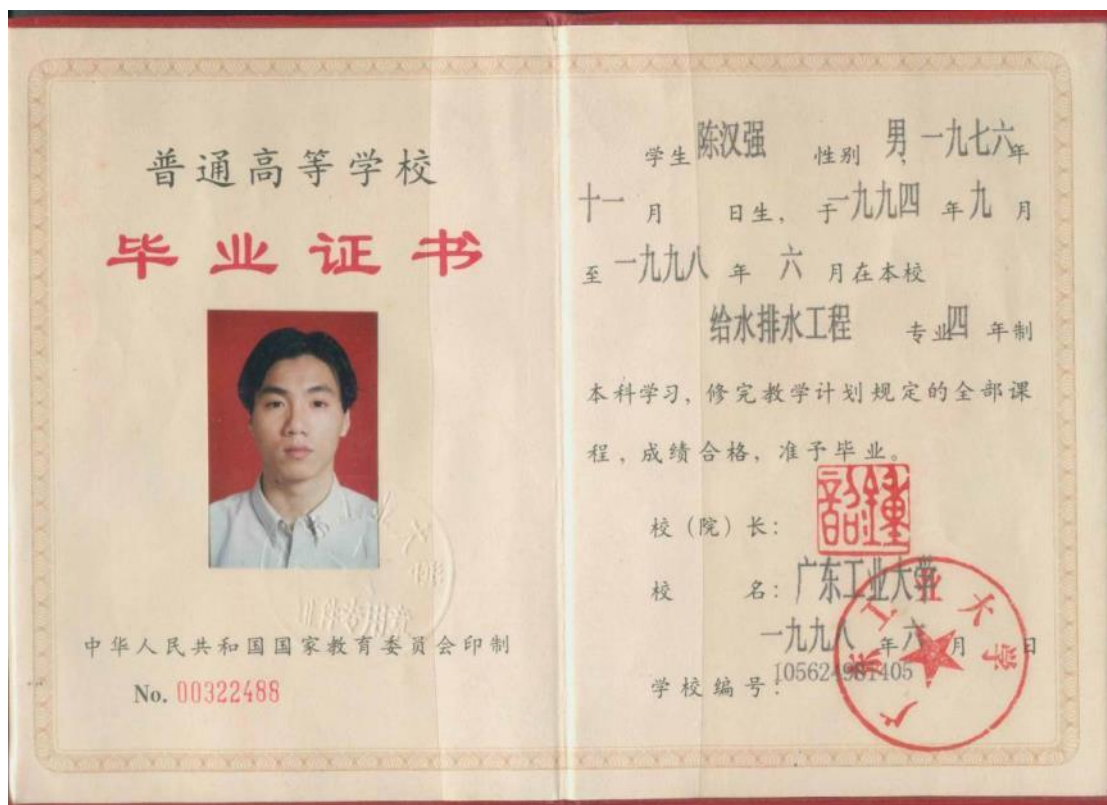 普通高等学校
毕业证书
中华人民共和国国家教育委员会印制
No. 00322488
学生 陈汉强 性别 男, 一九七六年
十一月 日生, 于一九九四年九月
至一九九八年六月在本校
给水排水工程 专业四年制
本科学习, 修完教学计划规定的全部课
程, 成绩合格, 准予毕业。
校(院)长:
校 名: 广东工业大学
一九九八年六月 日
学校编号: 105624981405
广东工业大学